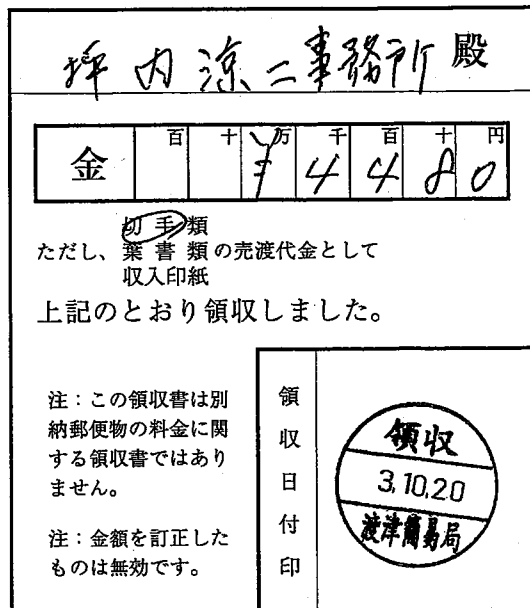 坪内涼二事務所 殿
金 百 十 万 千 百 十 円
¥4480
切手類
ただし、葉書類の売渡代金として
収入印紙
上記のとおり領収しました。
注：この領収書は別
納郵便物の料金に関
する領収書ではあり
ません。
注：金額を訂正した
ものは無効です。
領収日付印
領収
3.10.20
渡津簡易局